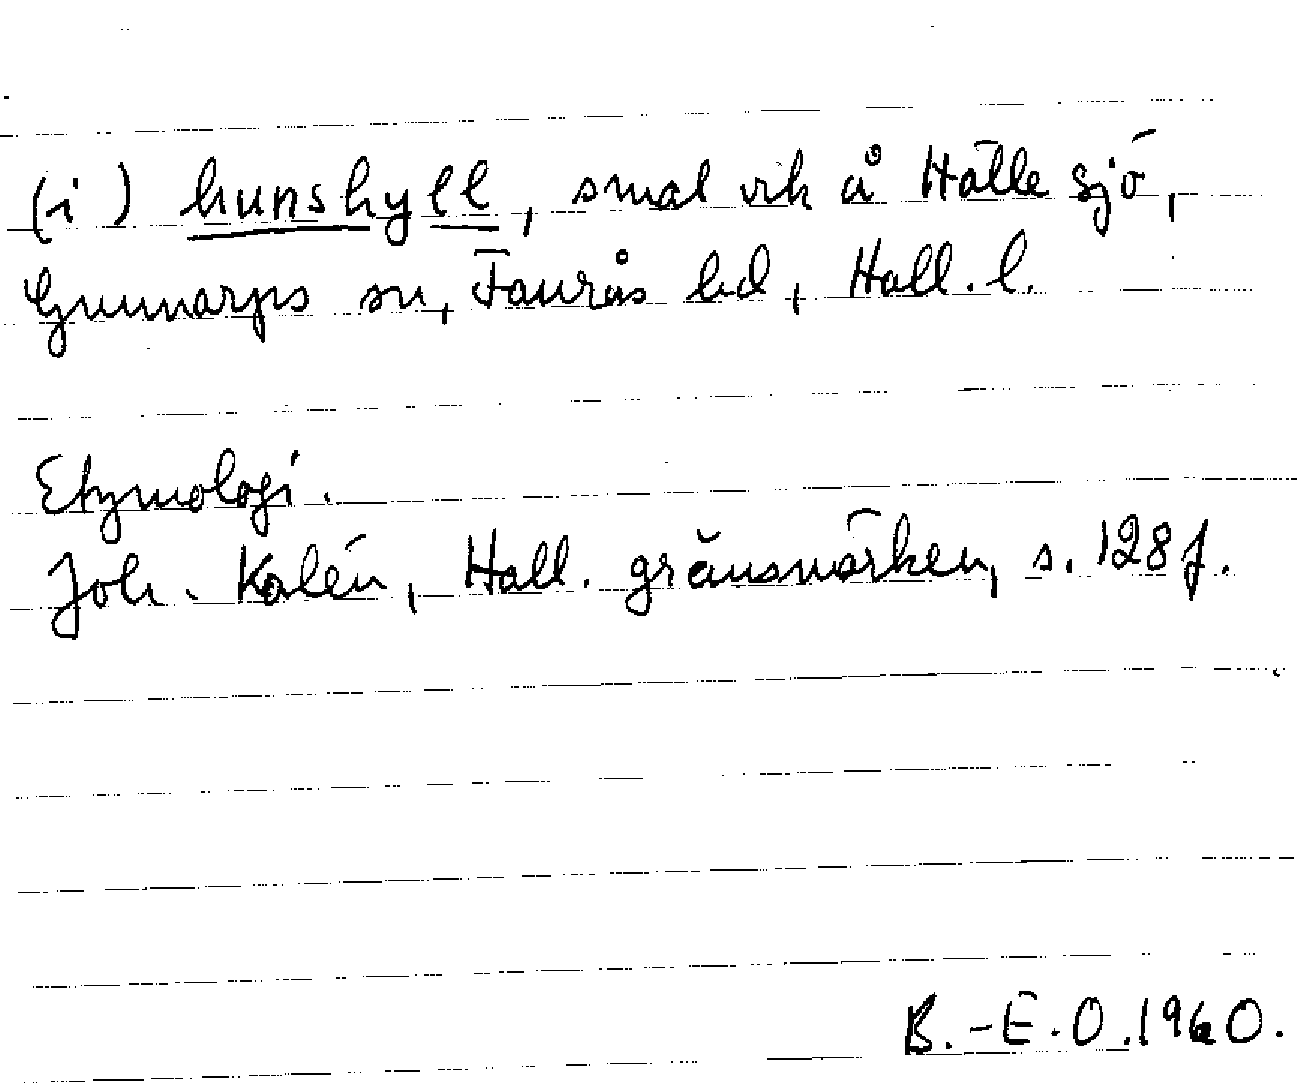 (i) hunshyll, smal vik å Hälle sjö,
Gunnarps sn, Faurås hd, Hall. l.
Etymologi.
Joh. Kalén, Hall. gränsmärken, s. 128 f.
B.-E.O. 1960.